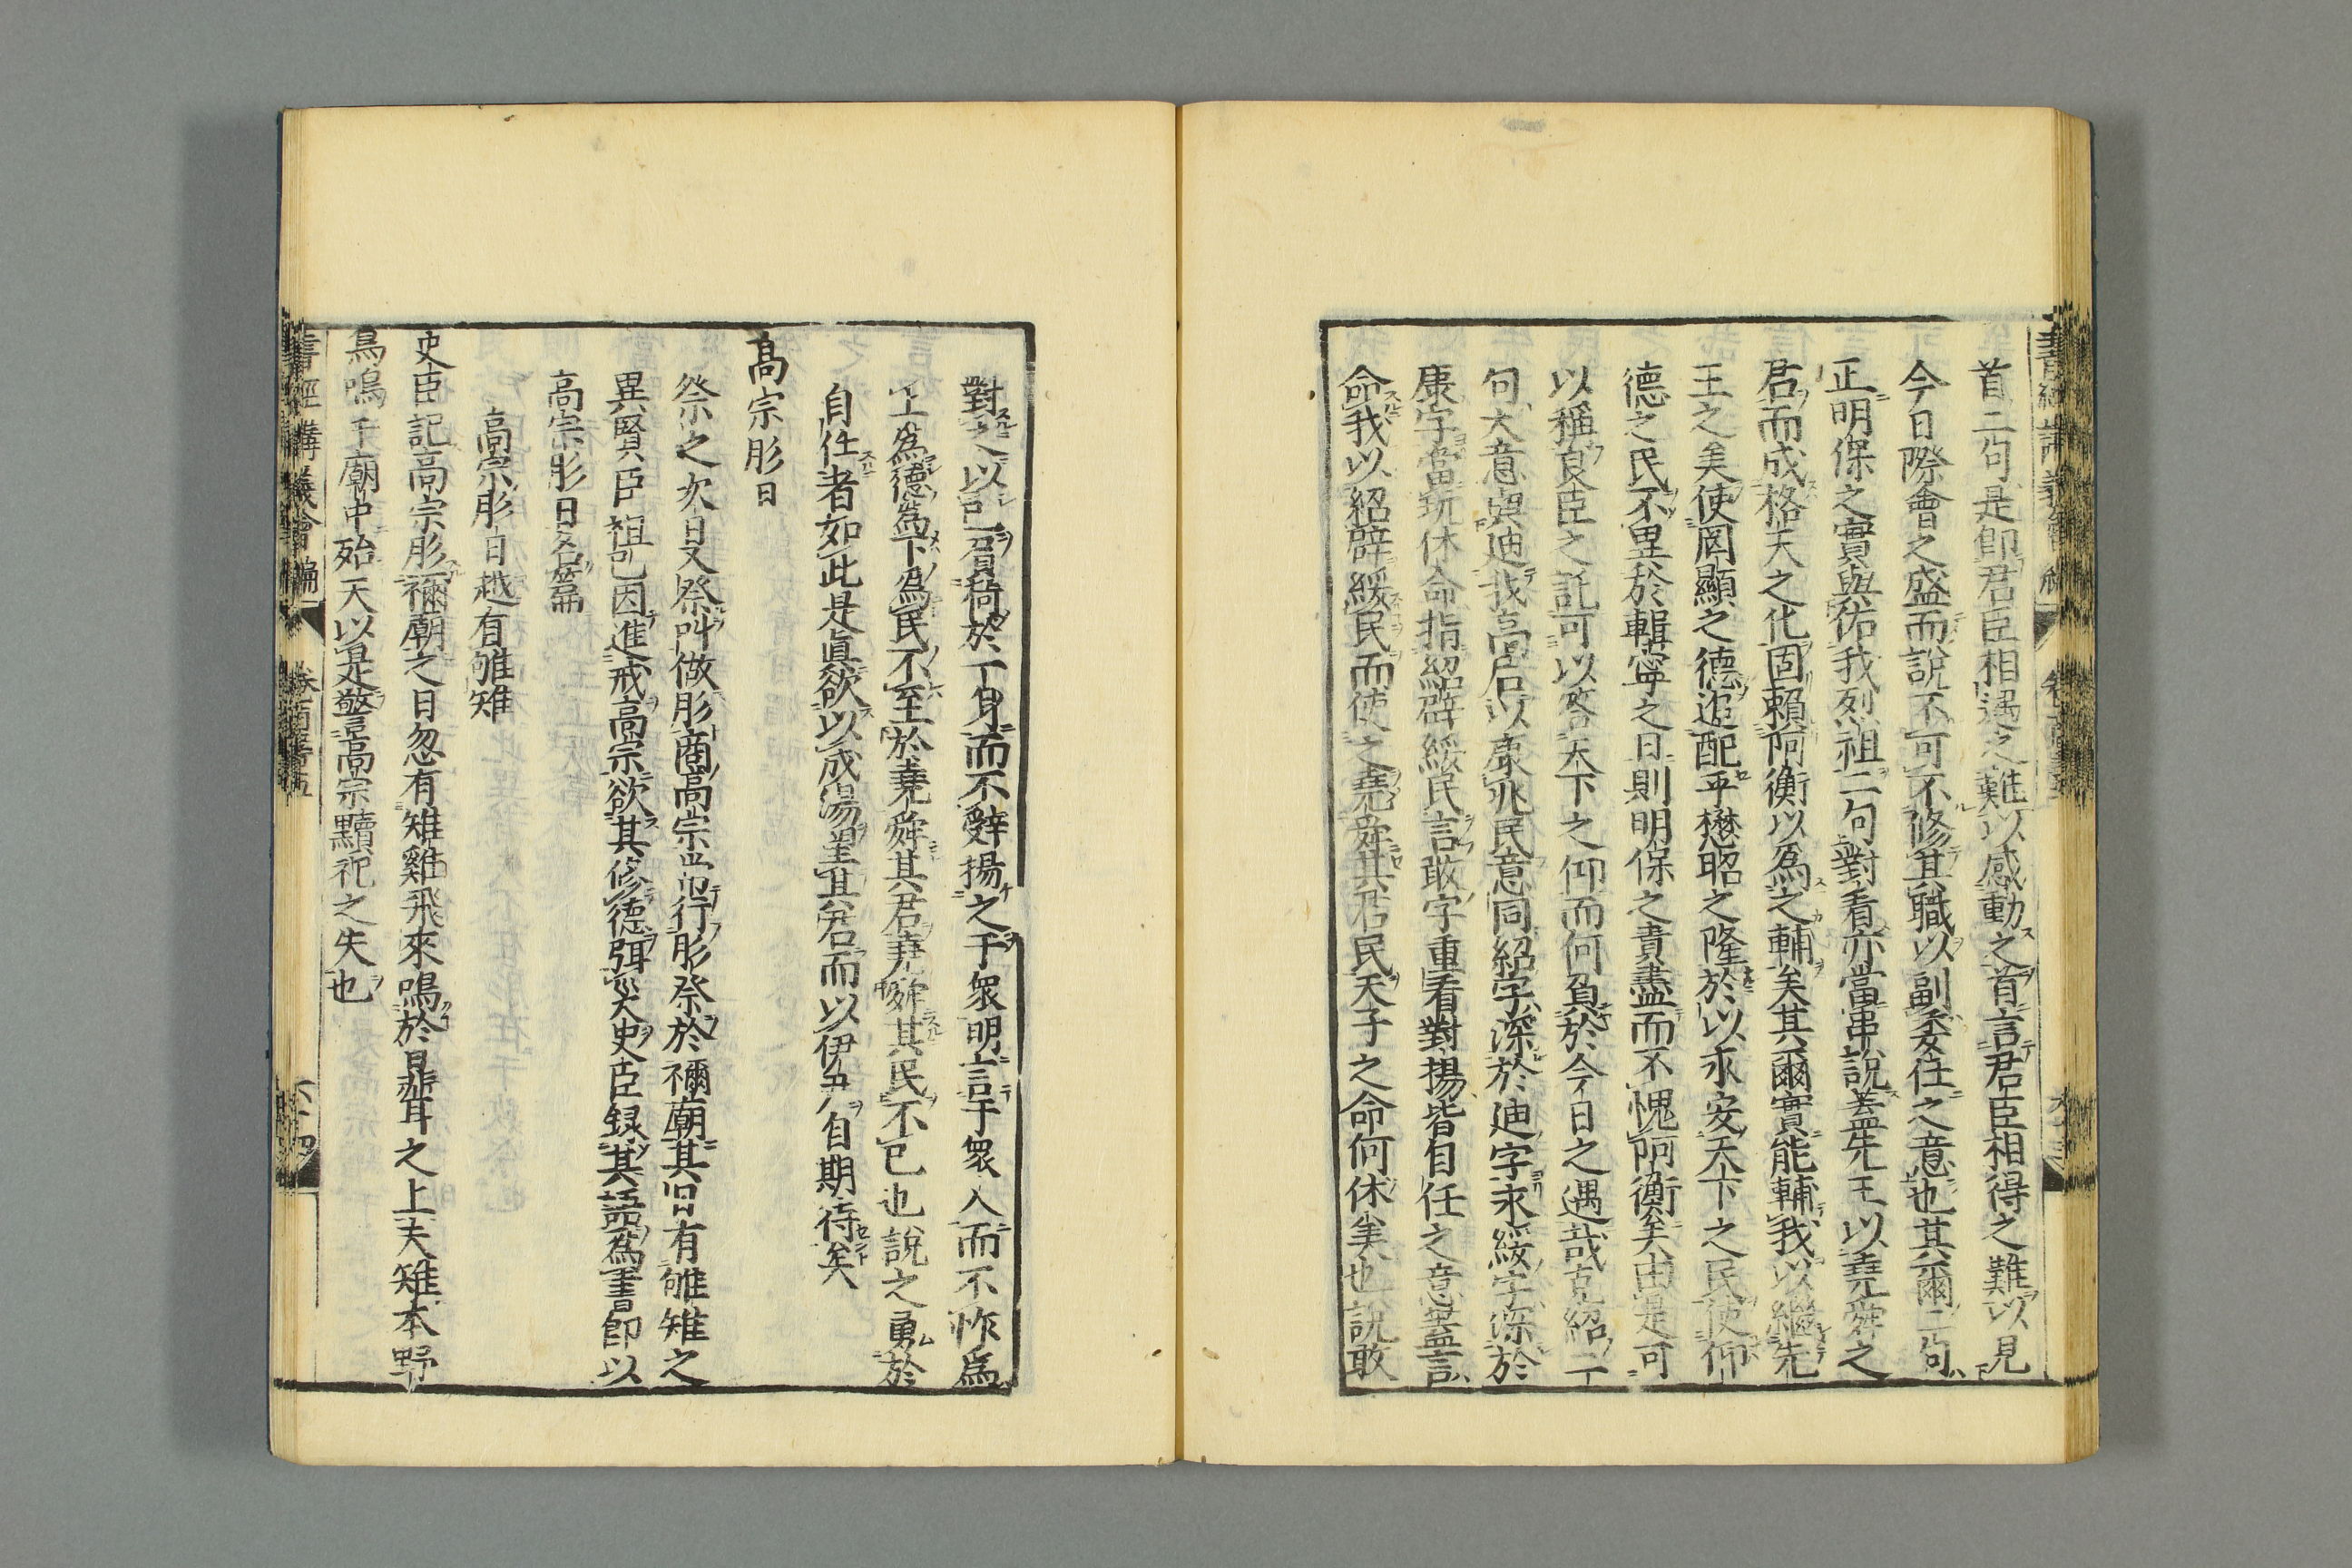 首二句是卽君臣相遇之難以感動之首言君臣相得之難以見
今日際會之盛而說不可不修其職以副委任之意也其爾二句
正明保之實與佑我烈祖二句對看亦當串說蓋先王以堯舜之
君而成格天之化固賴阿衡以爲之輔矣其爾實能輔我以繼先
王之美使罔顯之德追配乎懋昭之隆於以永安天下之民使仰
德之民不異於輯寧之日則明保之責盡而不愧阿衡矣由是可
以稱良臣之託可以答天下之仰而何負於今日之遇哉克紹二
句大意與迪我高后以康兆民意同紹字深於迪字永綏字深於
康字當玩休命指紹辟綏民言敢字重看對揚皆自任之意蓋言
命我以紹辟綏民而使之堯舜其君民天子之命何休美也說敢
對之以己肩荷於一身而不辭揚之于衆明言于衆人而不怍爲
上爲德爲下爲民不至於堯舜其君堯舜其民不已也說之勇於
自任者如此是眞欲以成湯望其君而以伊尹自期待矣
高宗肜日
祭之次日又祭叫做肜商高宗嘗行肜祭於禰廟其日有雊雉之
異賢臣祖己因進戒高宗欲其修德弭災史臣録其語爲書卽以
高宗肜日名篇
高宗肜日越有雊雉
史臣記高宗肜禰廟之日忽有雉雞飛來鳴於鼎耳之上夫雉本野
鳥鳴于廟中殆天以是警高宗黷祀之失也
書經講義會編 卷 商書五 六十四